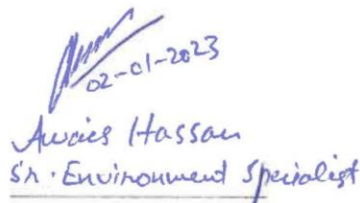 02-01-2023
Awais Hassan
Sr. Environment Specialist